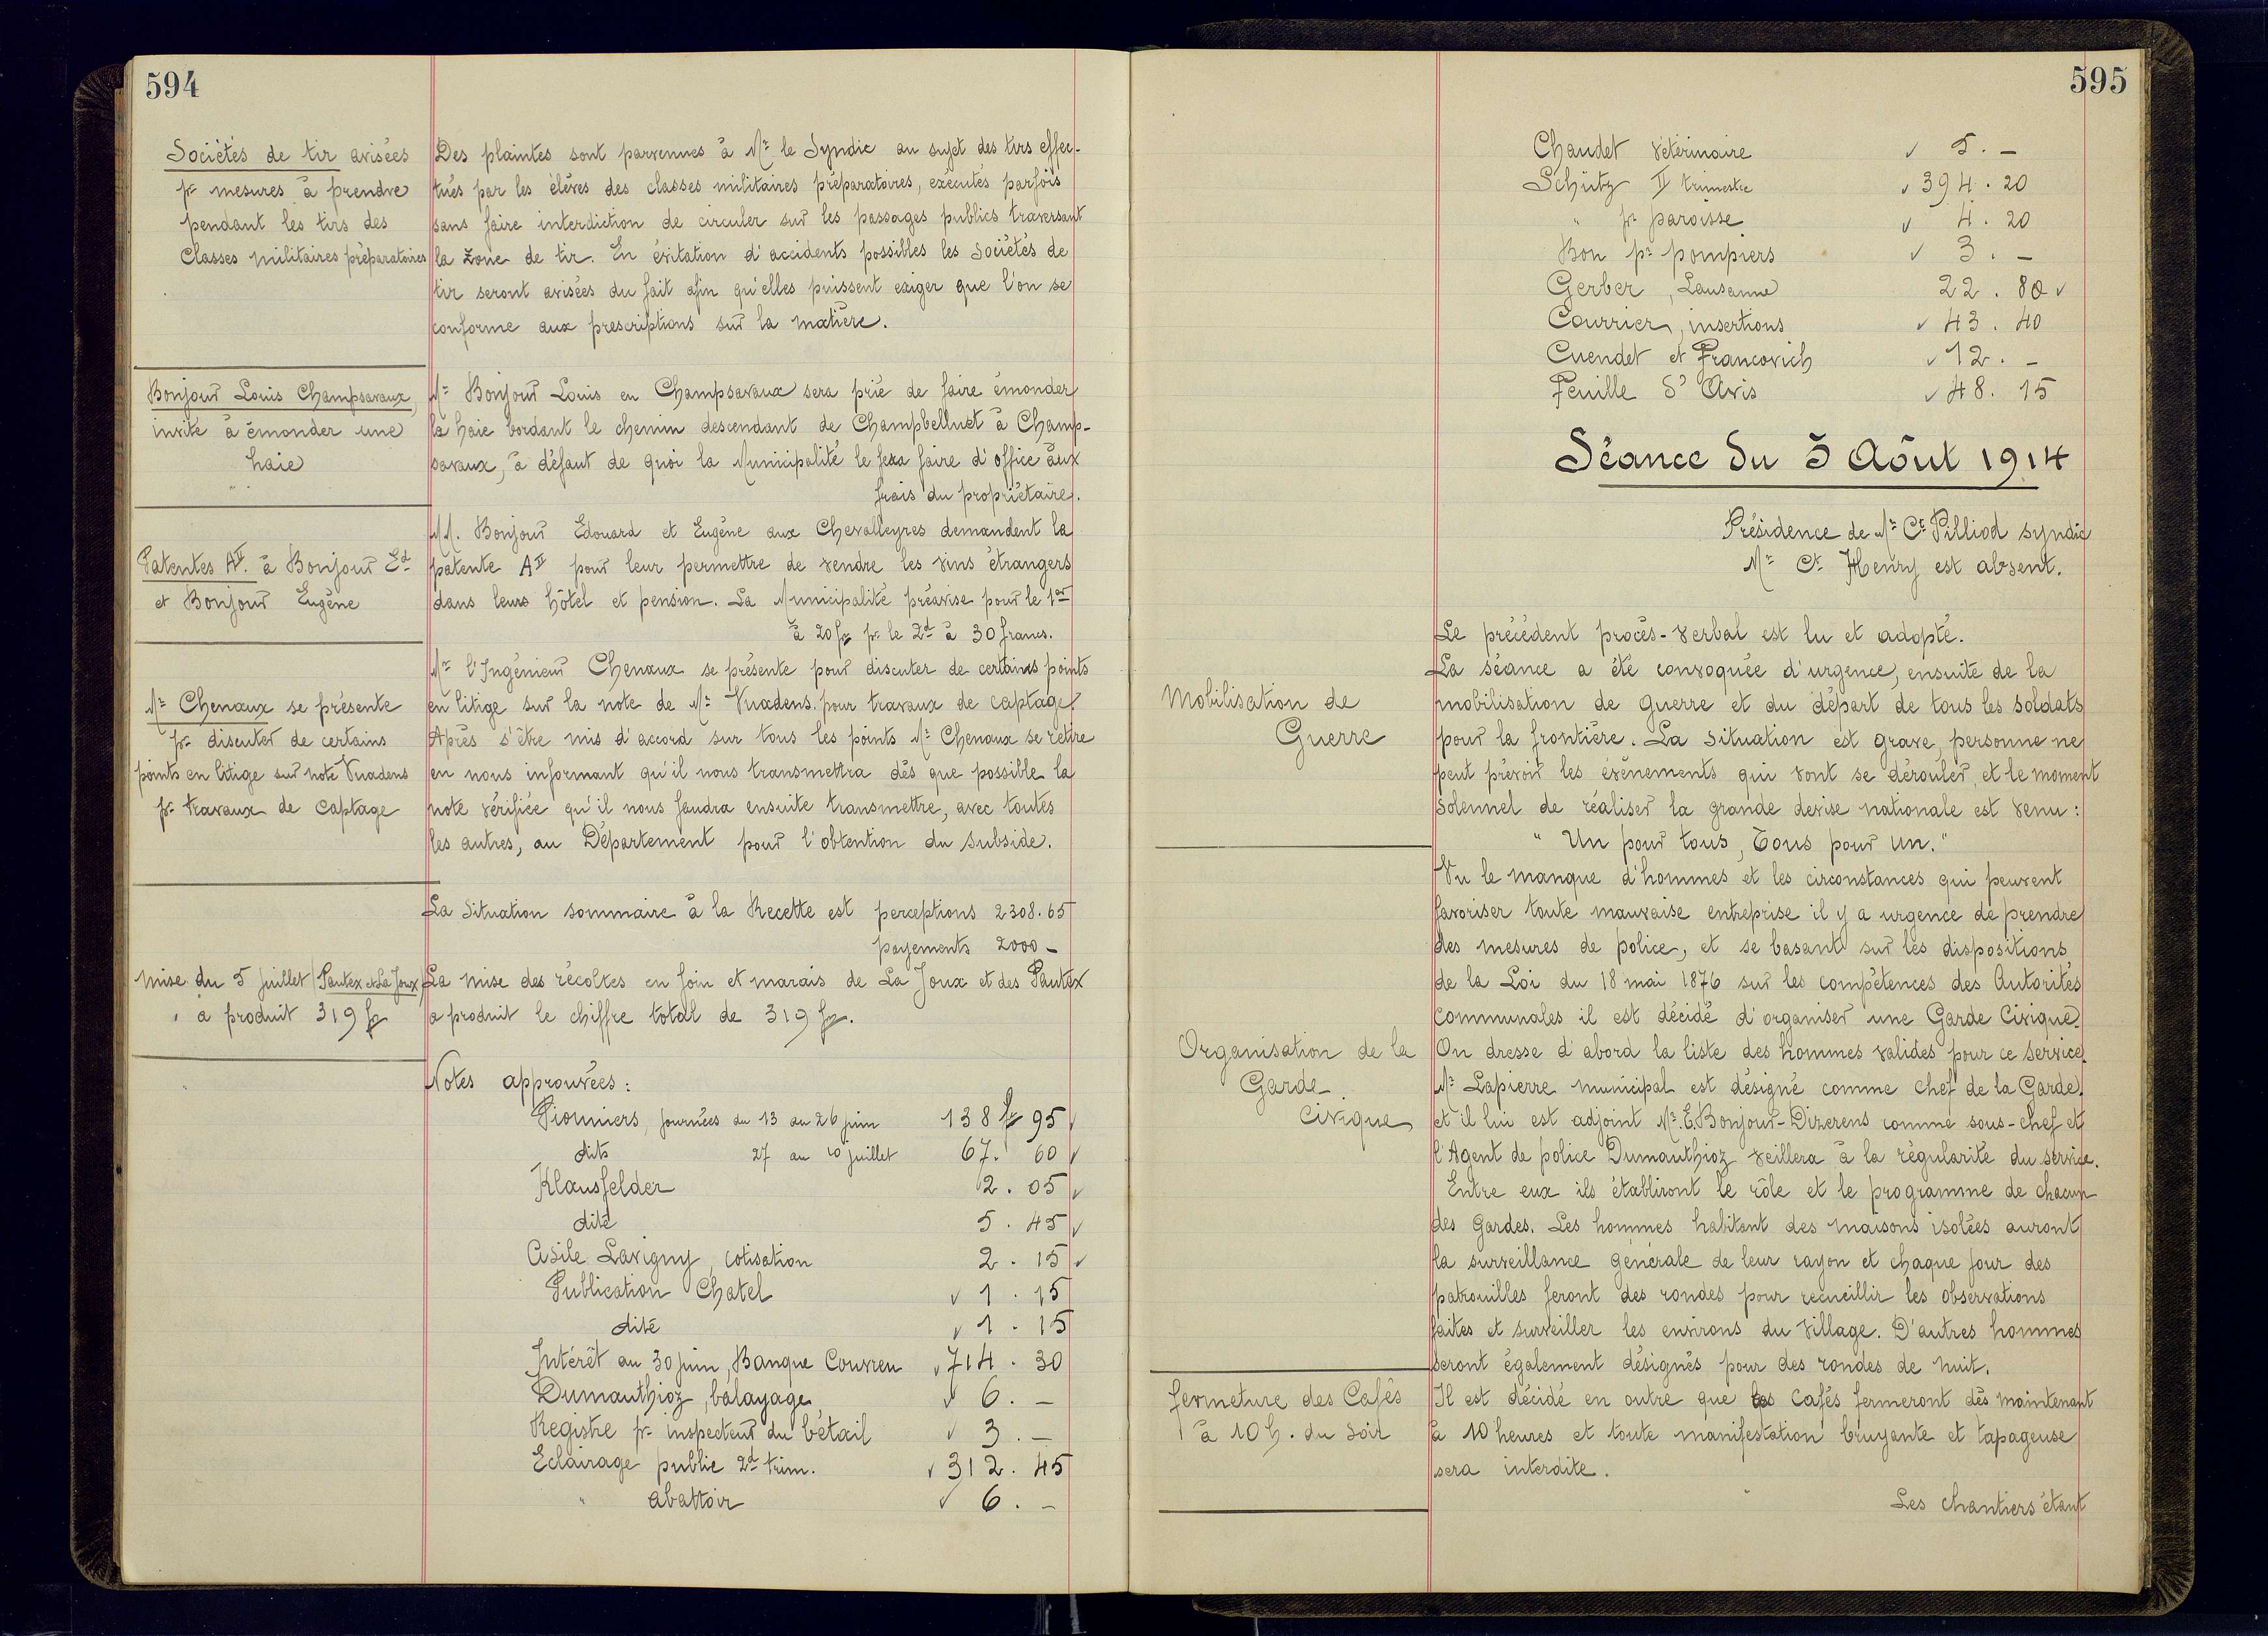 594
Sociétés de tir avisées
pr mesures à prendre
pendant les tirs des
Classes militaires préparatoires
Des plaintes sont parvenues à Mr le Syndic au sujet des tirs effec-
tués par les élèves des classes militaires préparatoires, exécutés parfois
sans faire interdiction de circuler sur les passages publics traversant
la zone de tir. En évitation d'accidents possibles les Sociétés de
tir seront avisées du fait afin qu'elles puissent exiger que l'on se
conforme aux prescriptions sur la matière.
Bonjour Louis Champsavaux,
invité à émonder une
haie
Mr Bonjour Louis en Champsavaux sera prié de faire émonder
la haie bordant le chemin descendant de Champbelluet à Champ-
savaux, à défaut de quoi la Municipalité le fera faire d'office aux
frais du propriétaire.
Patentes AII. à Bonjour Ed
et Bonjour Eugène
MM. Bonjour Edouard et Eugène aux Chevalleyres demandent la
patente AII pour leur permettre de vendre les vins étrangers
dans leurs hôtel et pension. La Municipalité préavise pour le 1er
à 20 fr pr le 2d à 30 francs.
Mr Chenaux se présente
pr discuter de certains
points en litige sur note Vuadens
pr travaux de captage
Mr l'Ingénieur Chenaux se présente pour discuter de certains points
en litige sur la note de Mr Vuadens. pour travaux de captage
Après s'être mis d'accord sur tous les points Mr Chenaux se retire
en nous informant qu'il nous transmettra dès que possible la
note vérifiée qu'il nous faudra ensuite transmettre, avec toutes
les autres, au Département pour l'obtention du subside.
La Situation sommaire à la Recette est perceptions 2308.65
payements 2000 –
Mise du 5 juillet (Pautex et La Joux)
a produit 319 fr
La mise des récoltes en foin et marais de La Joux et des Pautex
a produit le chiffre total de 319 fr.
Notes approuvées :
Pionniers, journées du 13 au 26 juin 138 fr 95 ✓
dits 27 au 10 juillet 67. 60 ✓
Klausfelder 2. 05 ✓
dité 5. 45 ✓
Asile Lavigny, cotisation 2. 15 ✓
Publication Chatel ✓ 1. 15
dité ✓ 1. 15
Intérêt au 30 juin, Banque Couvreu ✓ 714. 30
Dumauthioz, balayage, ✓ 6. –
Registre pr inspecteur du bétail ✓ 3. –
Eclairage public 2d trim. ✓ 312. 45
" abattoir ✓ 6. –
595
Chaudet Vétérinaire ✓ 5. –
Schütz II trimestre ✓ 394. 20
" pr paroisse ✓ 4. 20
Bon pr pompiers ✓ 3. –
Gerber, Lausanne 22. 80 ✓
Courrier, insertions ✓ 43. 40
Cuendet et Francovich ✓ 12. –
Feuille d'Avis ✓ 48. 15
Séance du 5 Août 1914
Présidence de Mr Ct Pilliod syndic
Mr Ct Henry est absent.
Le précédent procès-verbal est lu et adopté.
Mobilisation de
Guerre
La séance a été convoquée d'urgence, ensuite de la
mobilisation de guerre et du départ de tous les soldats
pour la frontière. La Situation est grave, personne ne
peut prévoir les événements qui vont se dérouler, et le moment
Solennel de réaliser la grande devise nationale est venu :
" Un pour tous, Tous pour un. "
Vu le manque d'hommes et les circonstances qui peuvent
favoriser toute mauvaise entreprise il y a urgence de prendre
des mesures de police, et se basant sur les dispositions
de la Loi du 18 mai 1876 sur les compétences des Autorités
Communales il est décidé d'organiser une Garde Civique.
Organisation de la
Garde
Civique
On dresse d'abord la liste des hommes valides pour ce service.
Mr Lapierre municipal est désigné comme chef de la Garde.
et il lui est adjoint Mr. E. Bonjour-Dizerens comme sous-chef et
l'Agent de police Dumauthioz veillera à la régularité du service.
Entre eux ils établiront le rôle et le programme de chacun
des Gardes. Les hommes habitant des maisons isolées auront
la surveillance générale de leur rayon et chaque jour des
patrouilles feront des rondes pour recueillir les observations
faites et surveiller les environs du village. D'autres hommes
seront également désignés pour des rondes de nuit.
fermeture des Cafés
à 10 h. du soir
Il est décidé en outre que les Cafés fermeront dès maintenant
à 10 heures et toute manifestation bruyante et tapageuse
sera interdite.
Les chantiers étant